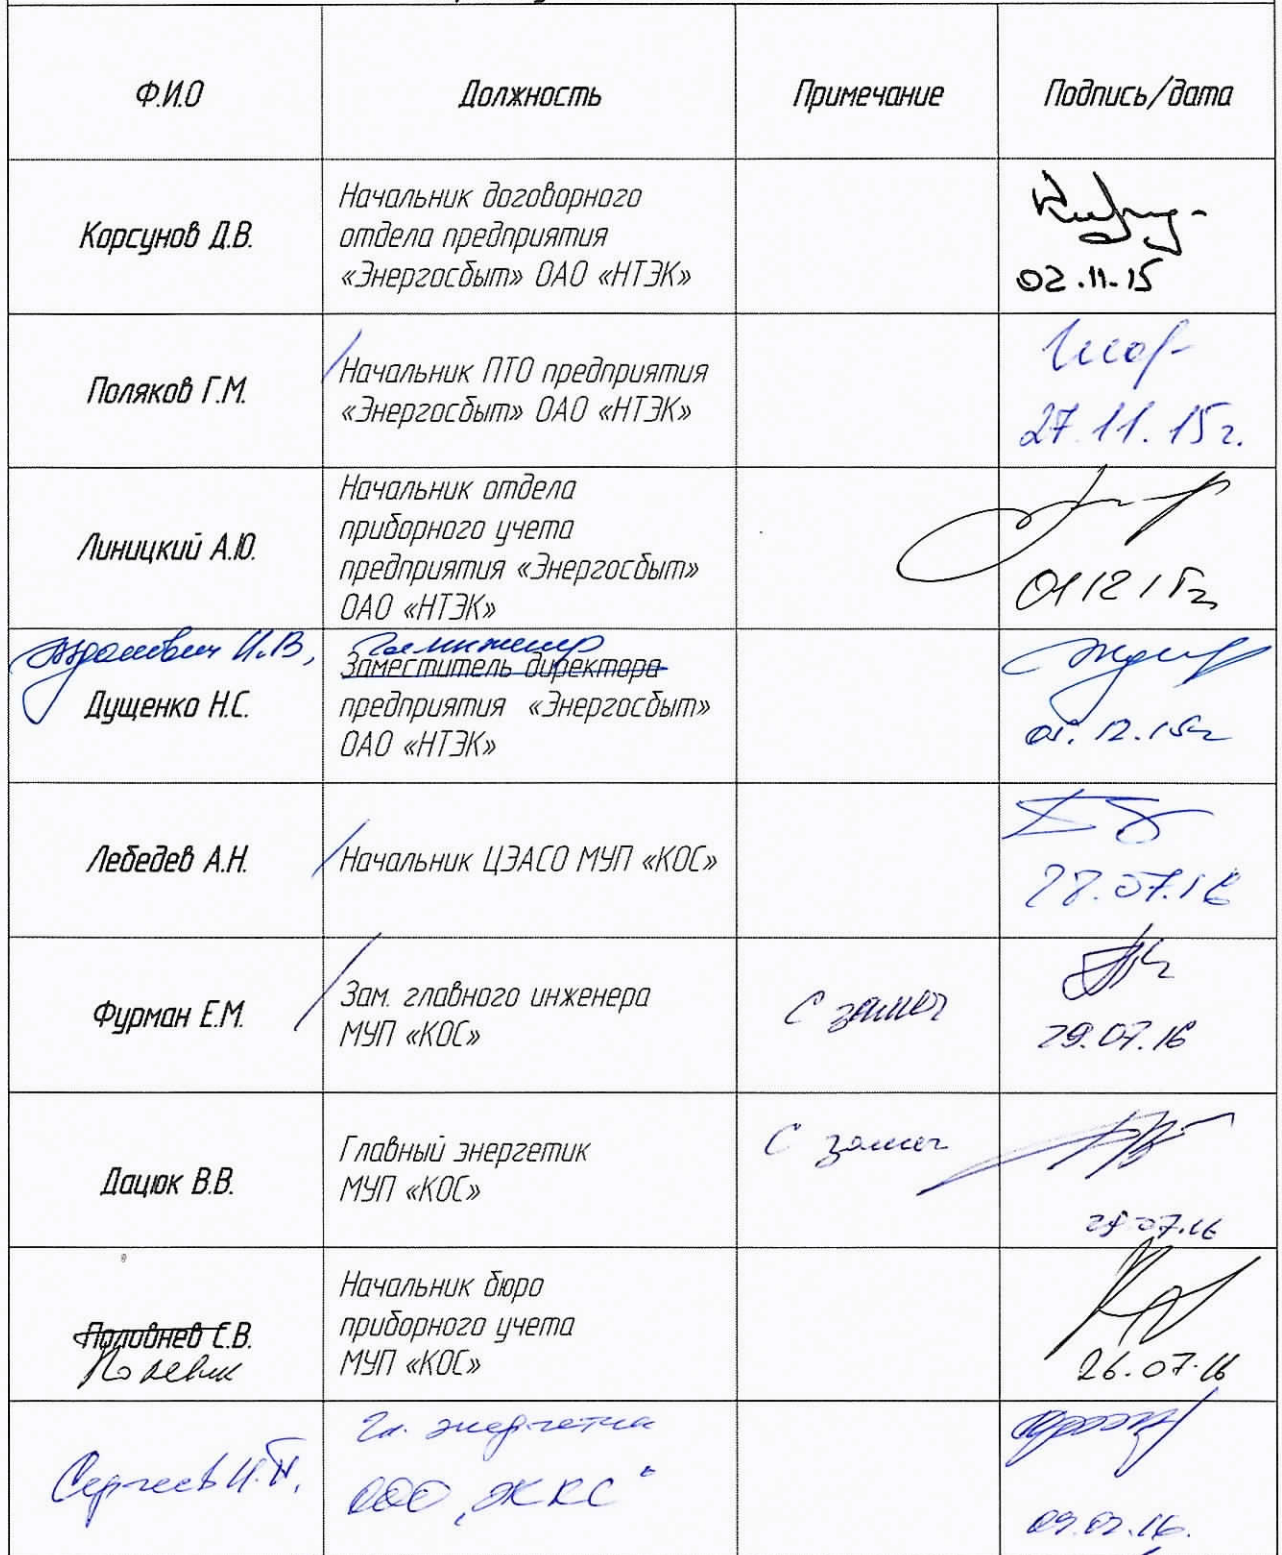 Ф.И.О
Должность
Примечание
Подпись/дата
Корсунов Д.В.
Начальник договорного
отдела предприятия
«Энергосбыт» ОАО «НТЭК»
02.11.15
Поляков Г.М.
Начальник ПТО предприятия
«Энергосбыт» ОАО «НТЭК»
27.11.15г.
Линицкий А.Ю.
Начальник отдела
приборного учета
предприятия «Энергосбыт»
ОАО «НТЭК»
01 12 15г
И.В,
Гл. инженер
Дущенко Н.С.
Заместитель директора
предприятия «Энергосбыт»
ОАО «НТЭК»
01.12.15г
Лебедев А.Н.
Начальник ЦЭАСО МУП «КОС»
28.07.16
Фурман Е.М.
Зам. главного инженера
МУП «КОС»
С замеч
29.07.16
Дацюк В.В.
Главный энергетик
МУП «КОС»
С замеч
28.07.16
Половнев С.В.
Начальник бюро
приборного учета
МУП «КОС»
26.07.16
Сергеев И.П.
Гл. энергетик
ООО "ЖККС"